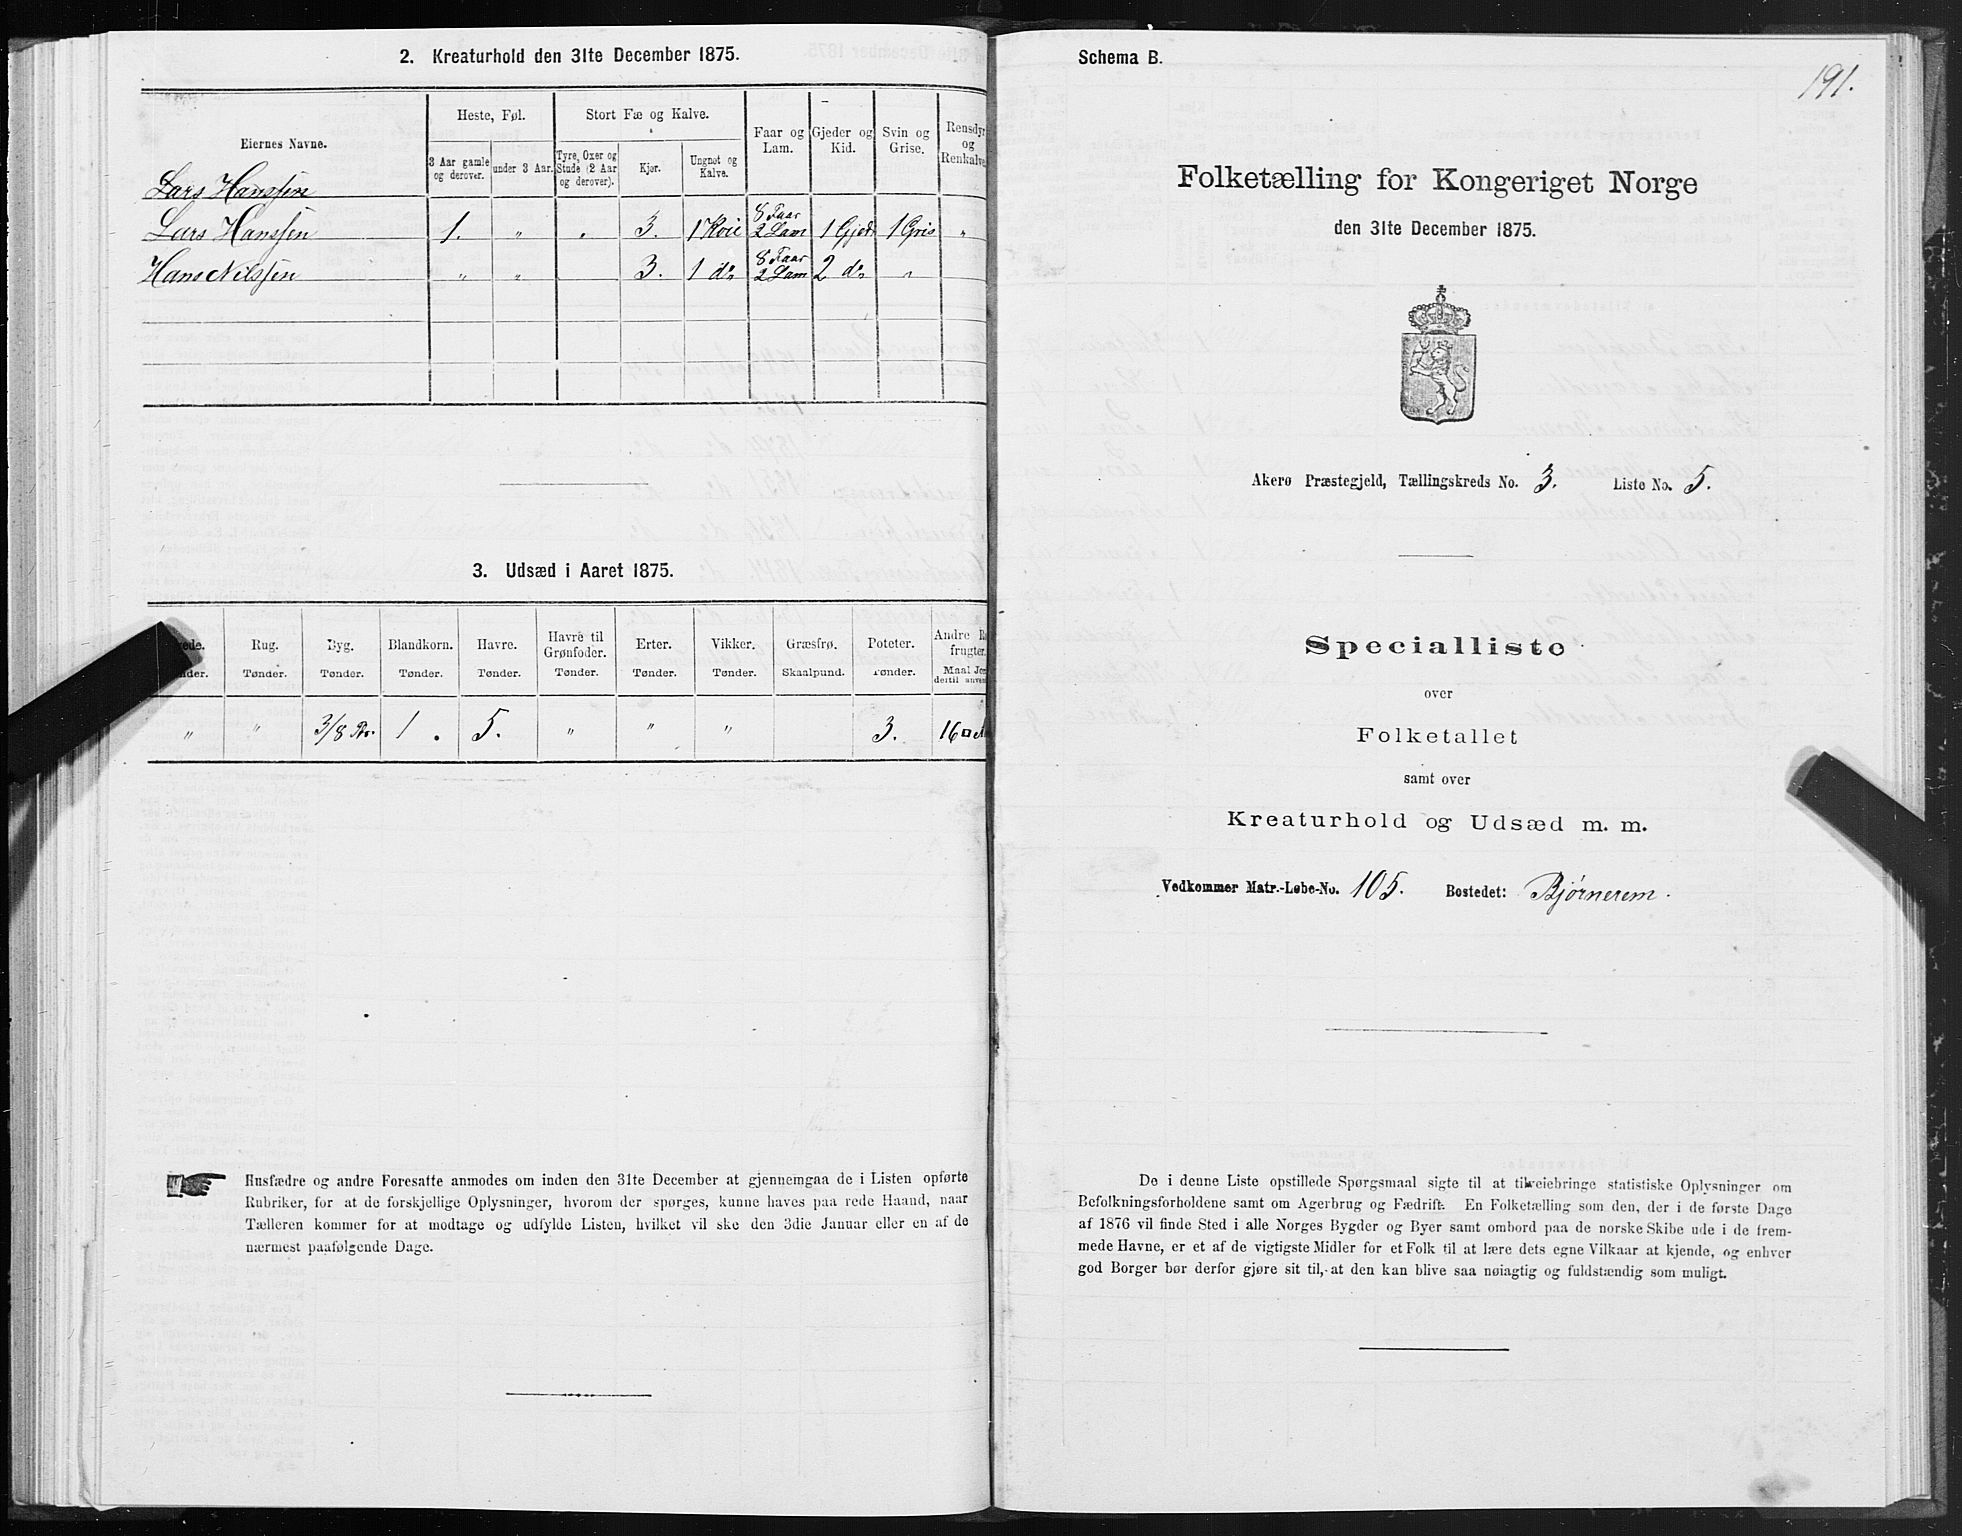 2. Kreaturhold den 31te December 1875.
Eiernes Navne.
Heste, Føl.
Stort Fæ og Kalve.
Faar og Lam.
Gjeder og Kid.
Svin og Grise.
Rensdyr og Renkalve.
3 Aar gamle og derover.
under 3 Aar.
Tyre, Oxer og Stude (2 Aar og derover).
Kjør.
Ungnøt og Kalve.
Lars Hanssen
Lars Hanssen 1. " " 3. 1 Kvie 8 Faar 2 Lam 1 Gjed 1 Gris "
Hans Nilssen " " 3. 1 do 8 Faar 2 Lam 2 do "
3. Udsæd i Aaret 1875.
Rug. Byg. Blandkorn. Havre. Havre til Grønfoder. Erter. Vikker. Græsfrø. Poteter. Andre
frugter.
Tønder. Tønder. Tønder. Tønder. Tønder. Tønder. Tønder. Skaalpund. Tønder. Maal
" " 3/8 1. 5. " " " 3. 16
Husfædre og andre Foresatte anmodes om inden den 31te December at gjennemgaa de i Listen opførte
Rubriker, for at de forskjellige Oplysninger, hvorom der spørges, kunne haves paa rede Haand, naar
Tælleren kommer for at modtage og udfylde Listen, hvilket vil ske den 3die Januar eller en af de
nærmest paafølgende Dage.
Schema B.
191.
Folketælling for Kongeriget Norge
den 31te December 1875.
Akerø Præstegjeld, Tællingskreds No. 3. Liste No. 5.
Specialliste
over
Folketallet
samt over
Kreaturhold og Udsæd m. m.
Vedkommer Matr.-Løbe-No. 105. Bostedet: Bjørnerem.
De i denne Liste opstillede Spørgsmaal sigte til at tilveiebringe statistiske Oplysninger om
Befolkningsforholdene samt om Agerbrug og Fædrift. En Folketælling som den, der i de første Dage
af 1876 vil finde Sted i alle Norges Bygder og Byer samt ombord paa de norske Skibe ude i de frem-
mede Havne, er et af de vigtigste Midler for et Folk til at lære dets egne Vilkaar at kjende, og enhver
god Borger bør derfor gjøre sit til, at den kan blive saa nøiagtig og fuldstændig som muligt.